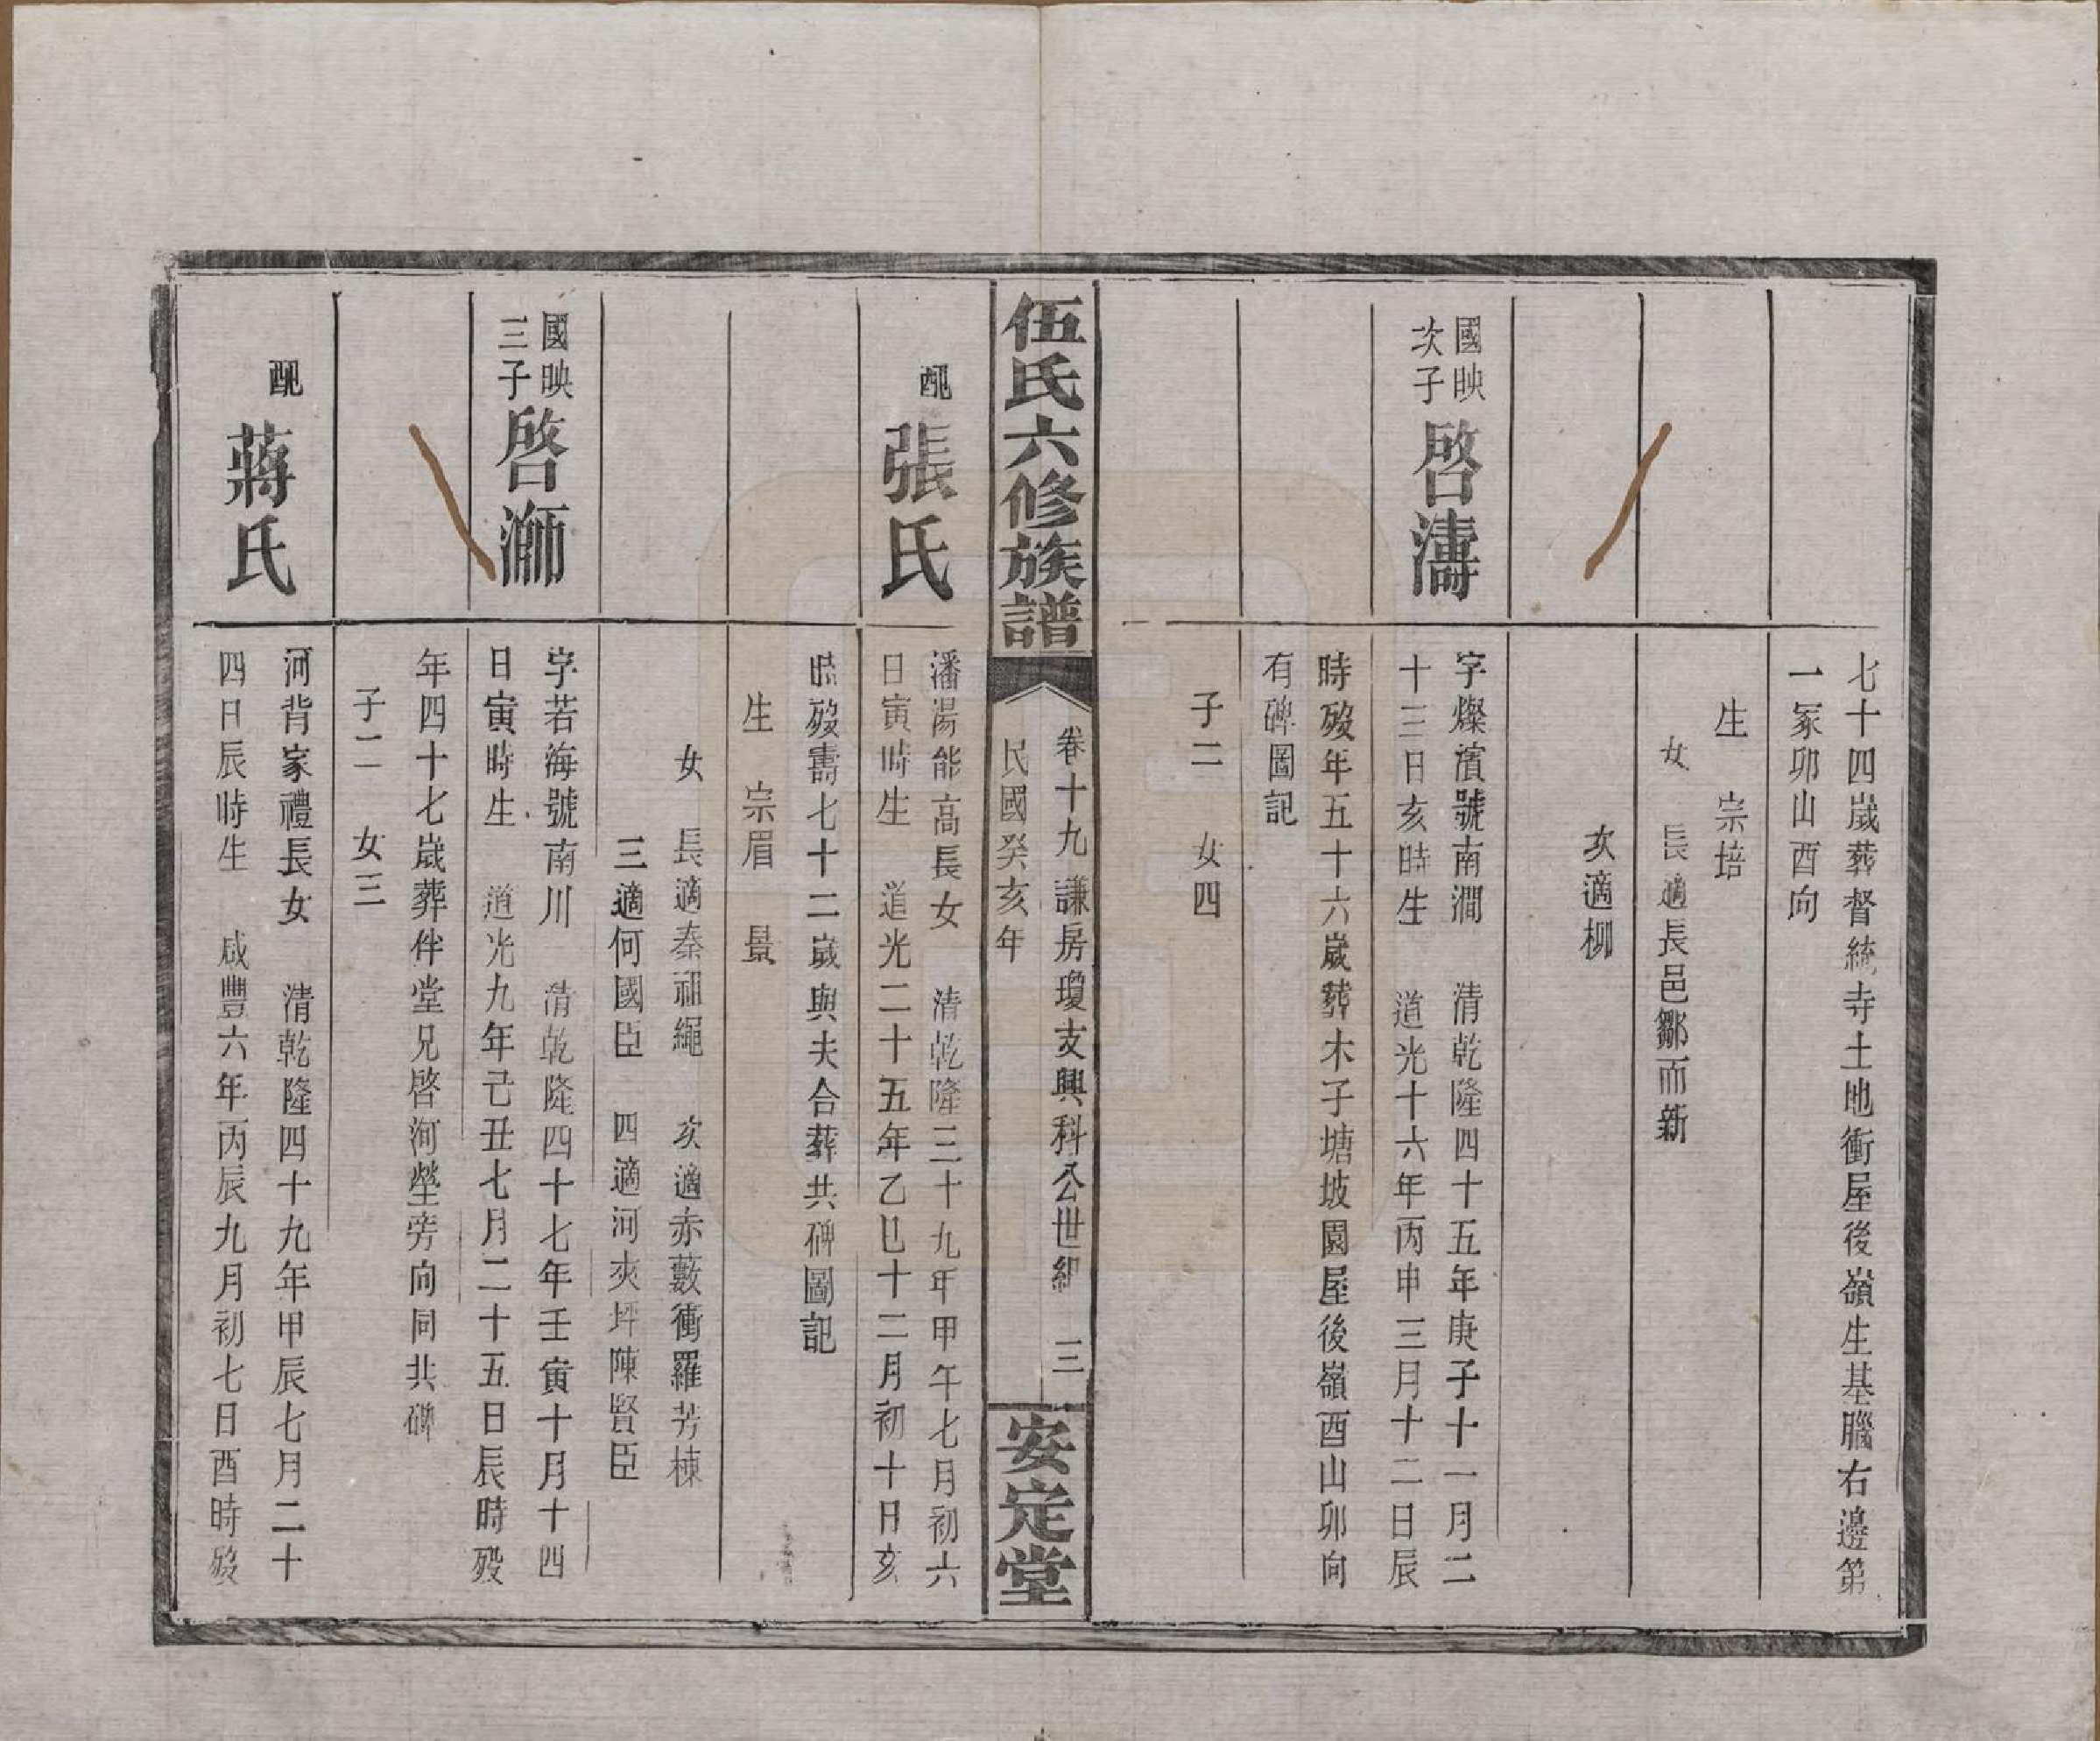 七十四歲葬督統寺土地衝屋後嶺生基腦右邊第
一冢卯山酉向
生 宗培
女 長適長邑鄒而新
次適柳
國映
次子
啓濤
字燦濱號南澗 清乾隆四十五年庚子十一月二
十三日亥時生 道光十六年丙申三月十二日辰
時歿年五十六歲葬木子塘坡園屋後嶺酉山卯向
有碑圖記
子二 女四
伍氏六修族譜
卷十九謙房瓊支興科公世紀 三
民國癸亥年
安定堂
配
張氏
潘湯能高長女 清乾隆三十九年甲午七月初六
日寅時生 道光二十五年乙巳十二月初十日亥
時歿壽七十二歲與夫合葬共碑圖記
生 宗眉 景
女 長適秦祖繩 次適赤藪衝羅芳棟
三適何國臣 四適河夾坪陳賢臣
國映
三子
啓浉
字若海號南川 清乾隆四十七年壬寅十月十四
日寅時生 道光九年己丑七月二十五日辰時歿
年四十七歲葬伴堂兄啓洵塋旁向同共碑
子二 女三
配
蔣氏
河背家禮長女 清乾隆四十九年甲辰七月二十
四日辰時生 咸豐六年丙辰九月初七日酉時歿